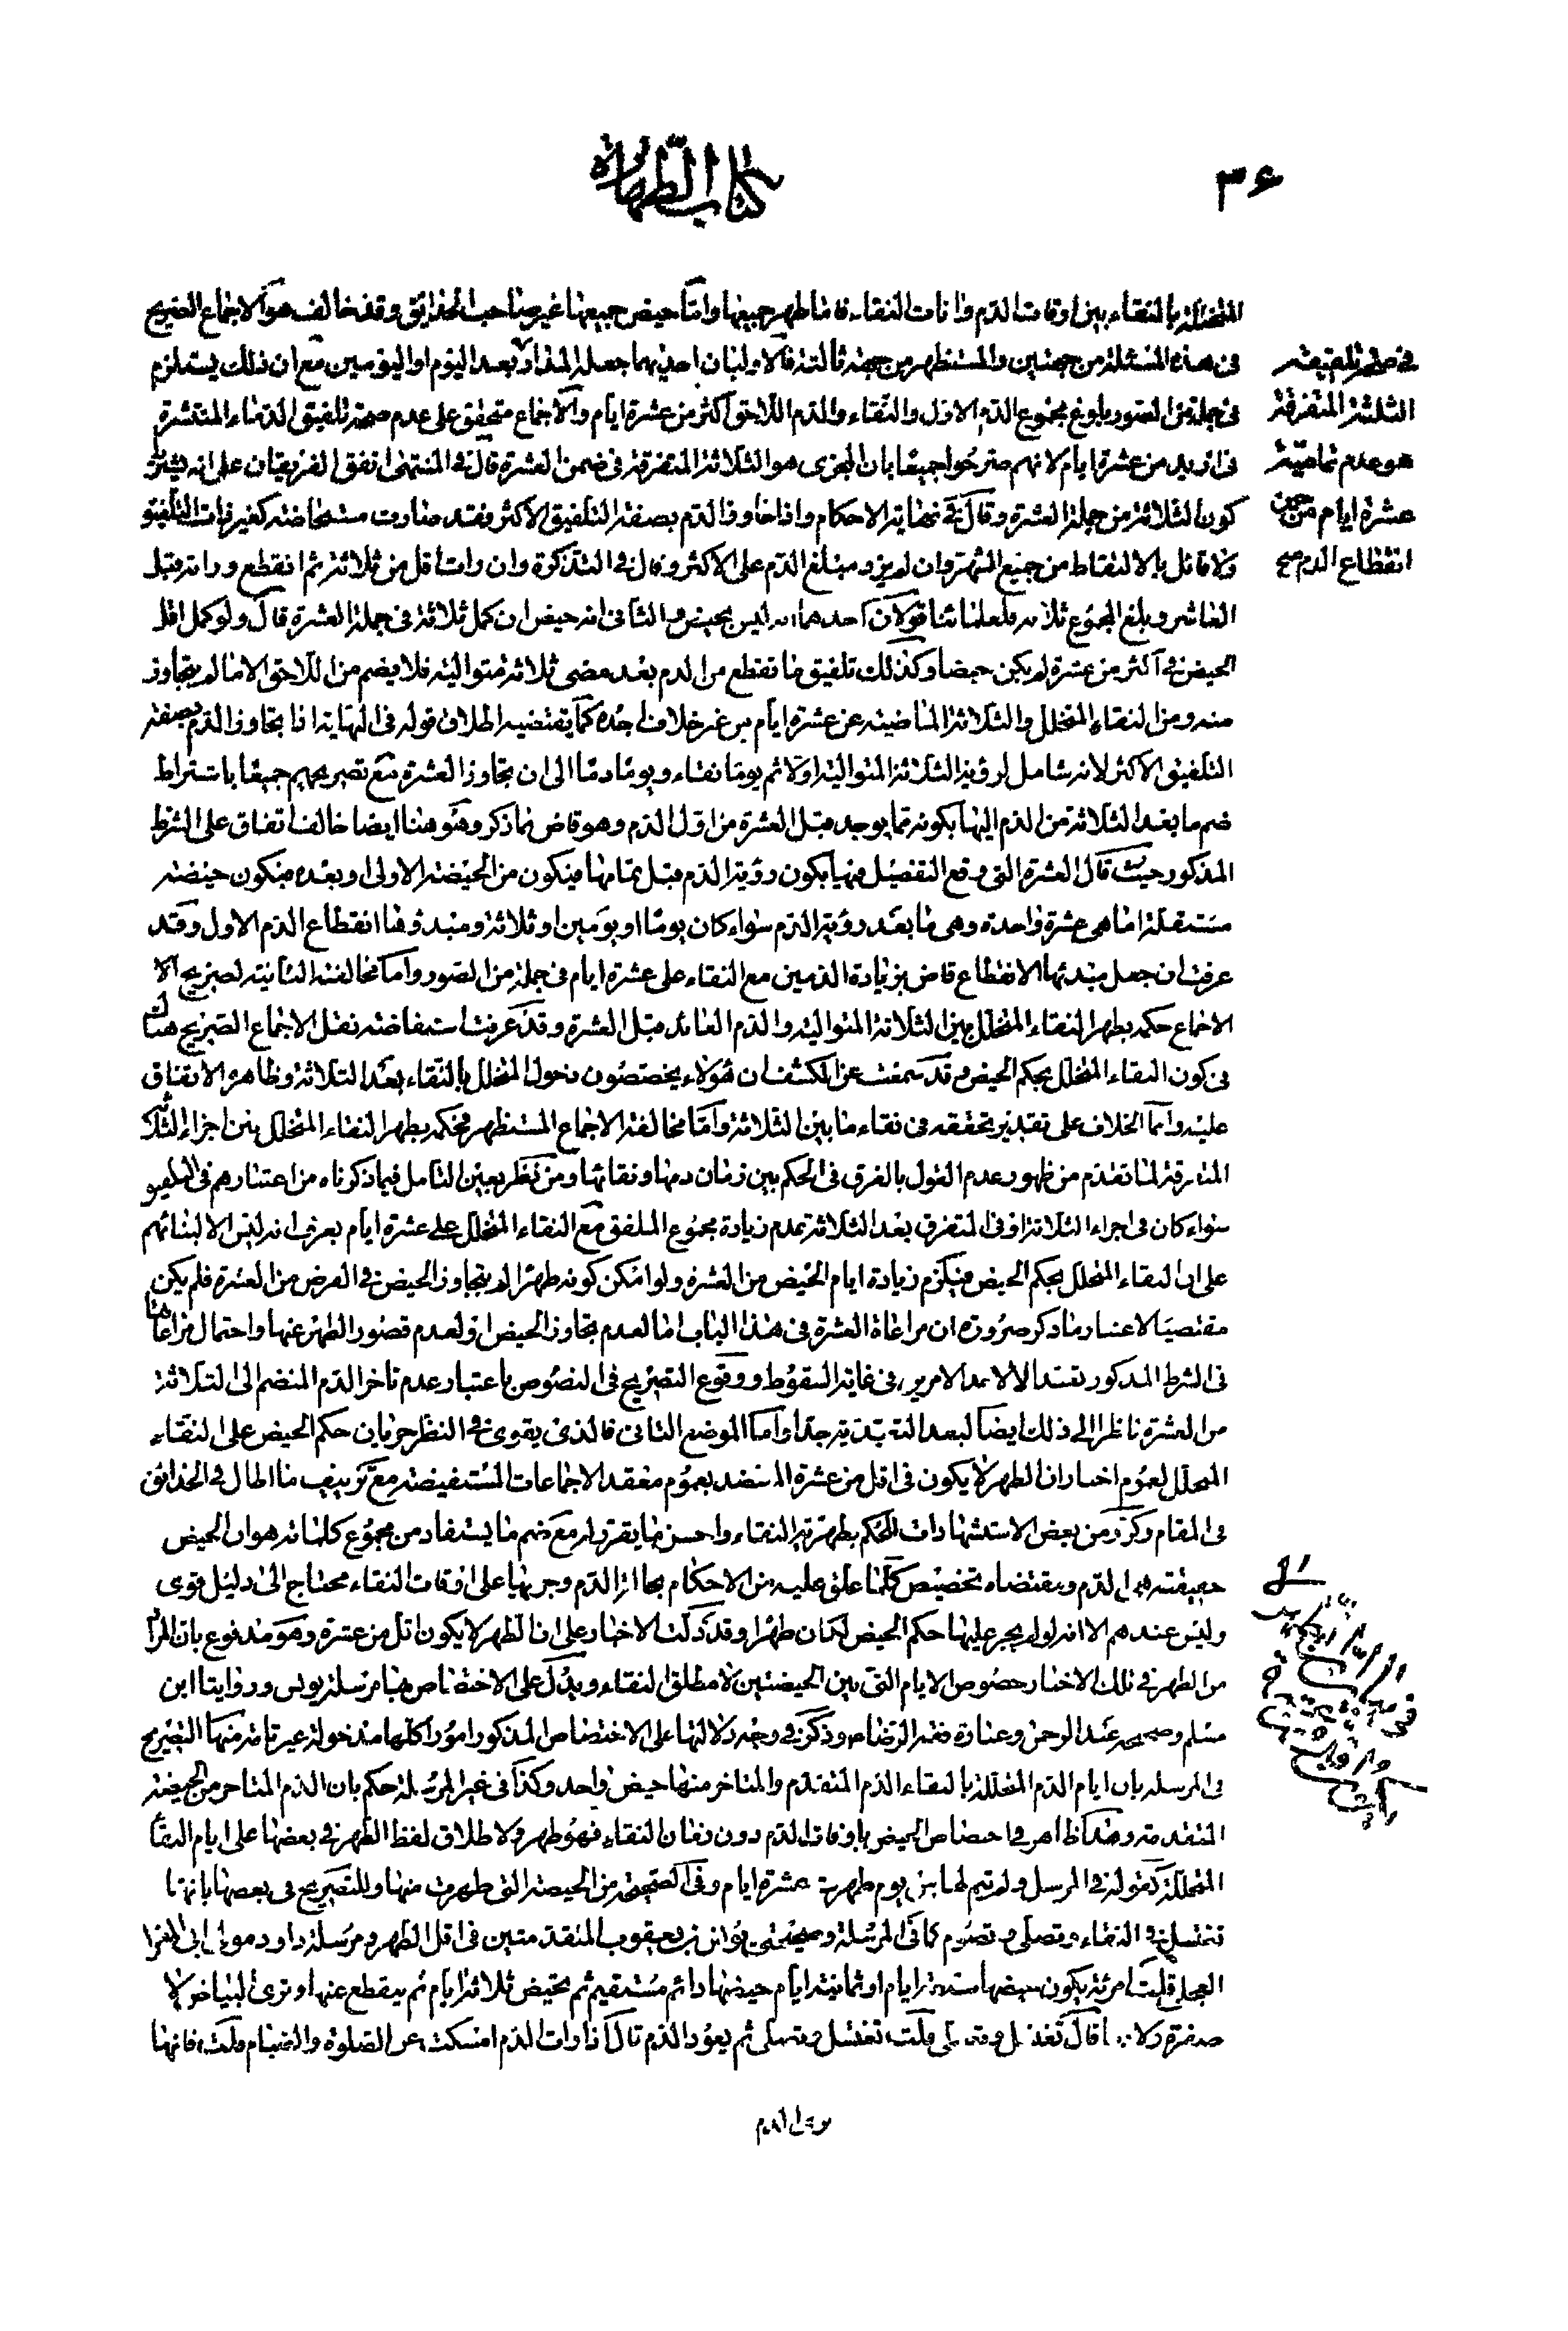 ٣٦
كتاب الطهارة
المتخللة بالنقاء بين اوقات الدم وانات النقاء فاما طهر جميعها واما حيض جميعها غير صاحب الحدائق وقد خالف هو الاجماع الصريح
فى هذه المسئلة من جهتين والمستظهر من جهة ثالثة فالاوليان احديهما جعله المدار بعد اليوم او اليومين مع ان ذلك يستلزم
فى جملة من الصور بلوغ مجموع الدم الاول والنقاء والدم اللاحق اكثر من عشرة ايام والاجماع متحقق على عدم صحة تلفيق الدماء المنتشرة
فى ازيد من عشرة ايام لانهم صرحوا جميعا بان المجزى هو الثلاثة المتفرقة فى ضمن العشرة قال فى المنتهى اتفق الفريقان على انه يشترط
كون الثلاثة من جملة العشرة وقال فى نهاية الاحكام واذا جاوز الدم بصفة التلفيق الاكثر فقد صارت مستحاضة كغير ذات التلفيق
ولا قائل بالالتقاط من جميع الشهر وان لم يزد مبلغ الدم على الاكثر وقال فى التذكرة وان رات اقل من ثلاثة ثم انقطع وراته قبل
العاشر وبلغ المجموع ثلاثة فلعلمائنا قولان احدهما انه ليس بحيض والثانى انه حيض ان كمل ثلاثة فى جملة العشرة قال ولو كمل اقل
الحيض فى اكثر من عشرة لم يكن حيضا وكذلك تلفيق ما تقطع من الدم بعد مضى ثلاثة متوالية فلا يضم من اللاحق الا ما لم يتجاوز
منه ومن النقاء المتخلل والثلاثة الماضية عن عشرة ايام من غير خلاف اجده كما يقتضيه اطلاق قوله فى النهاية اذا تجاوز الدم بصفة
التلفيق الاكثر لانه شامل لرؤية الثلاثة المتوالية اولا ثم يوما نقاء ويوما دما الى ان تجاوز العشرة مع تصريحهم جميعا باشتراط
ضم ما بعد الثلاثة من الدم اليها بكونه مما يوجد قبل العشرة من اول الدم وهو قاض بما ذكر وهو هنا ايضا خالف اتفاق على الشرط
المذكور حيث قال العشرة التى وقع التفصيل فيها بكون رؤية الدم قبل تمامها فيكون من الحيضة الاولى او بعده فيكون حيضة
مستقلة انما هى عشرة واحدة وهى ما بعد رؤية الدم سواء كان يوما او يومين او ثلاثة ومبدؤها انقطاع الدم الاول وقد
عرفت ان جعل مبدئها الانقطاع قاض بزيادة الدمين مع النقاء على عشرة ايام فى جملة من الصور واما مخالفته الثانية لصريح الا
الاجماع حكمه بطهر النقاء المتخلل بين الثلاثة المتوالية والدم العائد قبل العشرة وقد عرفت استفاضة نقل الاجماع الصريح هناك
فى كون النقاء المتخلل بحكم الحيض وقد سمعت عن الكشف ان هؤلاء يختصون دخول المتخلل بالنقاء بعد الثلاثة وظاهره الاتفاق
عليه وانما الخلاف على تقدير تحققه فى نقاء ما بين الثلاثة واما مخالفة الاجماع المستظهر فحكمه بطهر النقاء المتخلل بين اجزاء الثلثة
المتفرقة لما تقدم من ظهور عدم القول بالفرق فى الحكم بين زمان دمها ونقائها ومن نظر بعين التامل فيما ذكرناه من اعتبارهم فى التلفيق
سواء كان فى اجزاء الثلاثة او فى المتفرق بعد الثلاثة بعدم زيادة مجموع الملفق مع النقاء المتخلل على عشرة ايام يعرف انه ليس الا لبنائهم
على ان النقاء المتخلل بحكم الحيض فيلزم زيادة ايام الحيض من العشرة ولو امكن كونه طهرا لم يتجاوز الحيض فى الفرض من العشرة فلم يكن
مقتضيا لاعتبار ما ذكر ضرورة ان مراعاة العشرة فى هذا الباب اما لعدم تجاوز الحيض او لعدم قصور الطهر عنها واحتمال مراعاتها
فى الشرط المذكور تعبدا لا لاحد الامرين فى غاية السقوط ووقوع التصريح فى النصوص باعتبار عدم تاخر الدم المنضم الى الثلاثة
من العشرة ناظرا الى ذلك ايضا لبعد التعبدية جدا واما الموضع الثانى فالذى يقوى فى النظر جريان حكم الحيض على النقاء
المتخلل لعموم اخبار ان الطهر لا يكون فى اقل من عشرة المعتضد بعموم معقد الاجماعات المستفيضة مع تزييف ما اطال فى الحدائق
فى المقام وكرر من بعض الاستشهادات للحكم بطهرية النقاء واحسن ما يقرر له مع ضم ما يستفاد من مجموع كلماته هو ان الحيض
حقيقة هو الدم ومقتضاه تخصيص كلما علق عليه من الاحكام بحال الدم وجريها على اوقات النقاء محتاج الى دليل قوى
وليس عندهم الا انه لو لم يجر عليها حكم الحيض لكان طهرا وقد دلت الاخبار على ان الطهر لا يكون اقل من عشرة وهو مدفوع بان المراد
من الطهر فى تلك الاخبار خصوص الايام التى بين الحيضتين لا مطلق النقاء ويدل على الاختصاص بها مرسلة يونس وروايتا ابن
مسلم وصحيحة عبد الرحمن وعبارة فقه الرضا وذكر فى وجه دلالتها على الاختصاص المذكور امورا كلها مدخولة غير تامة منها التصريح
فى المرسلة بان ايام الدم المتخللة بالنقاء الدم المتقدم والمتاخر منها حيض واحد وكذا فى غير المرسلة حكم بان الدم المتاخر من الحيضة
المتقدمة وهذا ظاهر فى اختصاص الحيض باوقات الدم دون زمان النقاء فهو طهر ولا طلاق لفظ الطهر فى بعضها على ايام النقاء
المتخللة كقوله فى المرسل ولم يتم لها من يوم طهرت عشرة ايام وفى الصحيحة من الحيضة التى طهرت منها وللتصريح فى بعضها بانها
تغتسل فى النقاء وتصلى وتصوم كما فى المرسلة وصحيحتى يونس بن يعقوب المتقدمتين فى اقل الطهر ومرسلة داود مولى ابى المغرا
العجلى قلت امرئة يكون حيضها ستة ايام او ثمانية ايام حيضها دائم مستقيم ثم تحيض ثلاثة ايام ثم ينقطع عنها وترى البياض لا
صفرة ولا دما قال تغتسل وتصلى قلت تغتسل وتصلى ثم يعود الدم قال اذا رات الدم امسكت عن الصلوة والصيام قلت فانها
الثلثة المتفرقة
هو عدم تمامية
عشرة ايام من حين
انقطاع الدم صح